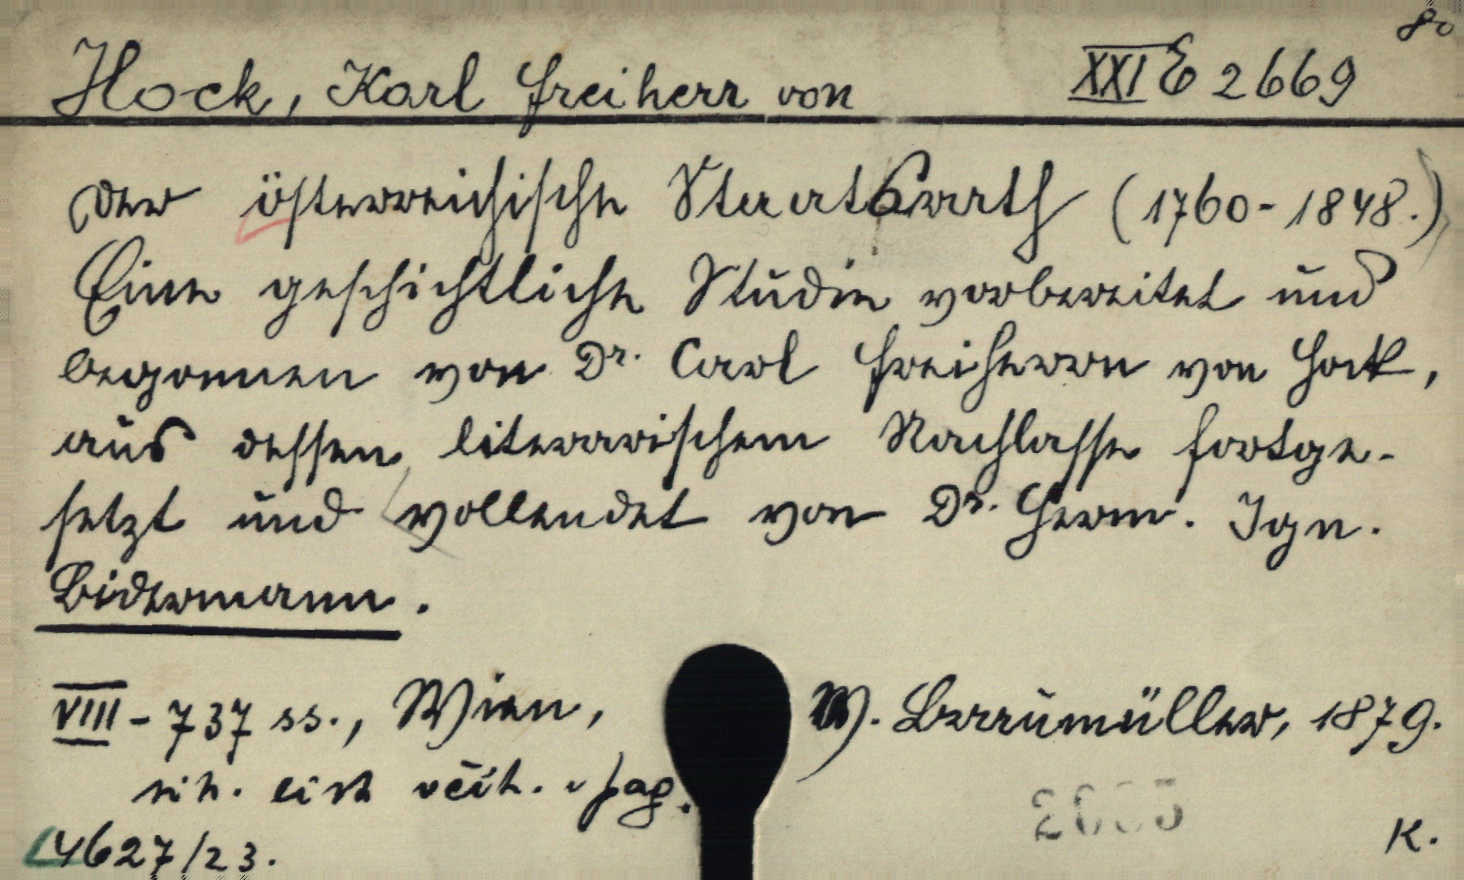 8o
Hock, Karl Freiherr von XXI E 2669
Der österreichische Staatsrath (1760-1848.)
Eine geschichtliche Studie vorbereitet und
begonnen von Dr. Carl Freiherrn von Hock,
aus dessen literarischem Nachlasse fortge-
setzt und vollendet von Dr. Herm. Ign.
Bidermann.
VIII - 737 ss., Wien, W. Braumüller, 1879.
včih. pag.
4627/23.
K.